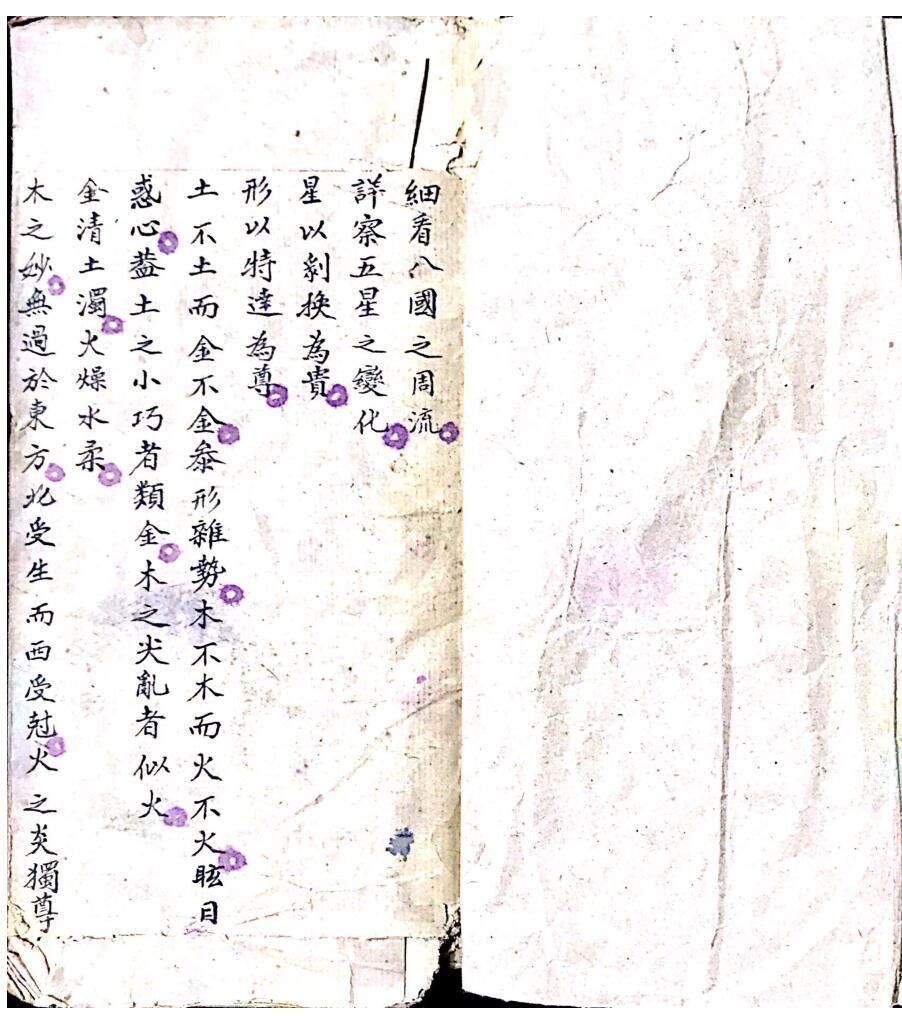 細看八國之周流
詳察五星之變化
星以剝換為貴
形以特達為尊
土不土而金不金叅形雜勢木不木而火不火眩目
惑心葢土之小巧者類金木之尖亂者似火
金清土濁火燥水柔
木之妙無過於東方北受生而西受尅火之炎獨尊